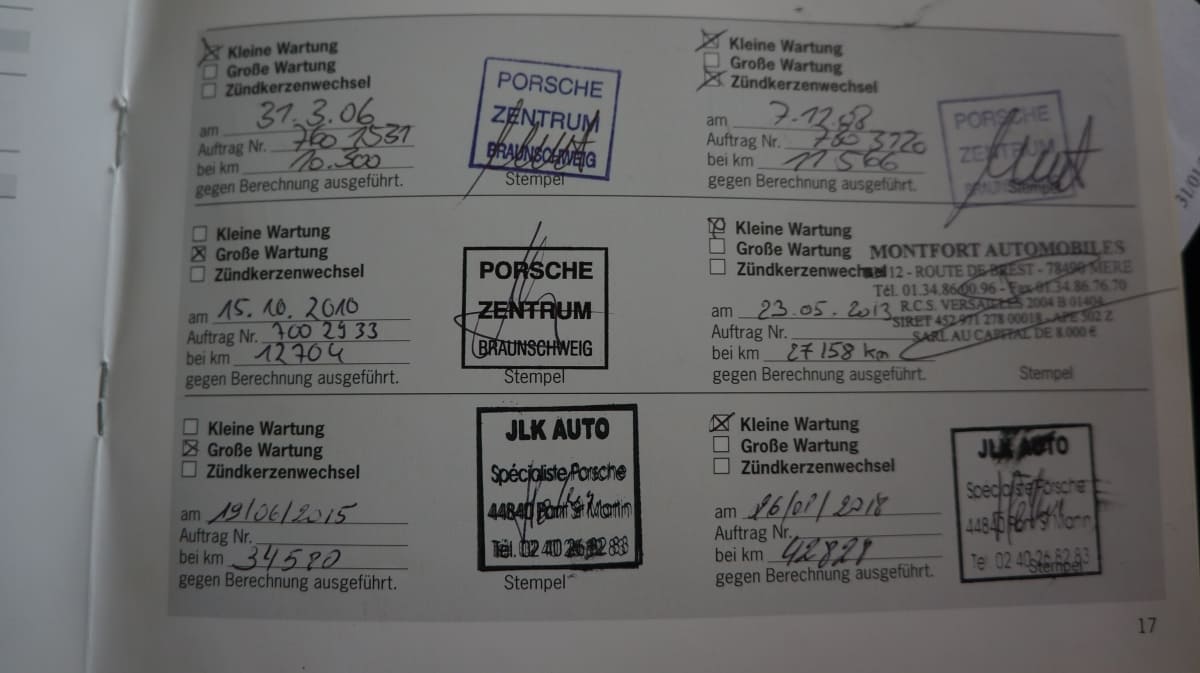 Kleine Wartung
Große Wartung
Zündkerzenwechsel
am 31.3.06
Auftrag Nr. 760 1531
bei km 10.500
gegen Berechnung ausgeführt.
PORSCHE
ZENTRUM
BRAUNSCHWEIG
Stempel
Kleine Wartung
Große Wartung
Zündkerzenwechsel
am 7.12.08
Auftrag Nr. 780 3226
bei km 11 566
gegen Berechnung ausgeführt.
PORSCHE
ZENTRUM
BRAUNSCHWEIG
Stempel
Kleine Wartung
Große Wartung
Zündkerzenwechsel
am 15.10.2010
Auftrag Nr. 700 2933
bei km 12704
gegen Berechnung ausgeführt.
PORSCHE
ZENTRUM
BRAUNSCHWEIG
Stempel
Kleine Wartung
Große Wartung
Zündkerzenwechsel
am 23.05.2013
Auftrag Nr.
bei km 27158 km
gegen Berechnung ausgeführt.
MONTFORT AUTOMOBILES
12 - ROUTE DE BREST - 78490 MERE
Tél. 01.34.86.00.96 - Fax 01.34.86.76.70
R.C.S. VERSAILLES 2004 B 01404
SIRET 452 971 278 00018 - APE 502 Z
SARL AU CAPITAL DE 8.000 €
Stempel
Kleine Wartung
Große Wartung
Zündkerzenwechsel
am 19/06/2015
Auftrag Nr.
bei km 34580
gegen Berechnung ausgeführt.
JLK AUTO
Spécialiste Porsche
44840 Port St Martin
Tél. 02 40 26 82 83
Stempel
Kleine Wartung
Große Wartung
Zündkerzenwechsel
am 26/01/2018
Auftrag Nr.
bei km 42828
gegen Berechnung ausgeführt.
JLK AUTO
Spécialiste Porsche
44840 Port St Martin
Tel 02 40 26 82 83
Stempel
17